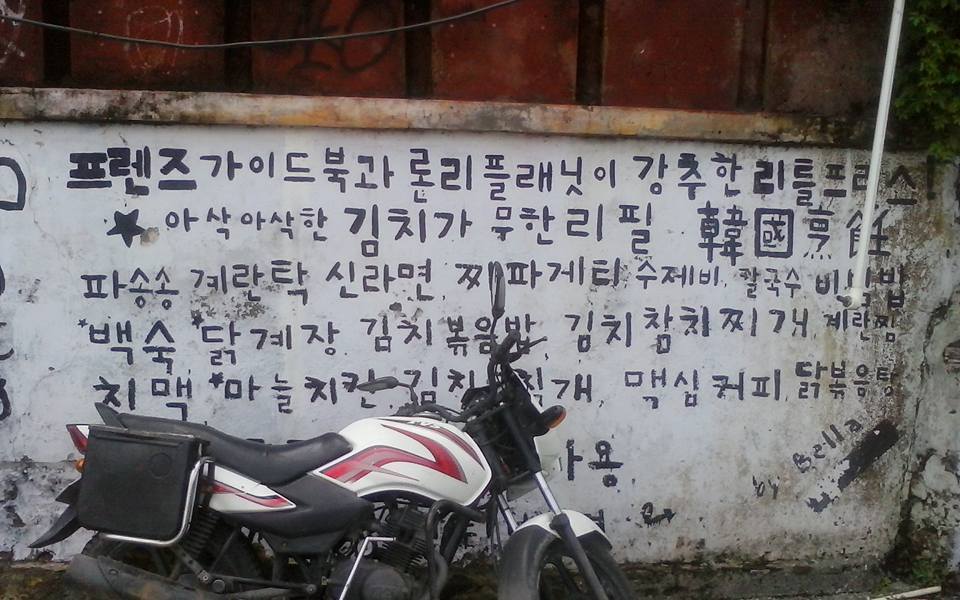 프렌즈 가이드북과 론리플래닛이 강추한 리틀프린스!
★ 아삭아삭한 김치가 무한리필 韓國烹飪
파송송 계란탁 신라면, 짜파게티 수제비, 칼국수 비빔밥
*백숙 *닭계장 김치볶음밥, 김치참치찌개 계란찜
치맥 *마늘치킨 김치찌개, 맥심커피, 닭볶음탕
사용.
by Bella